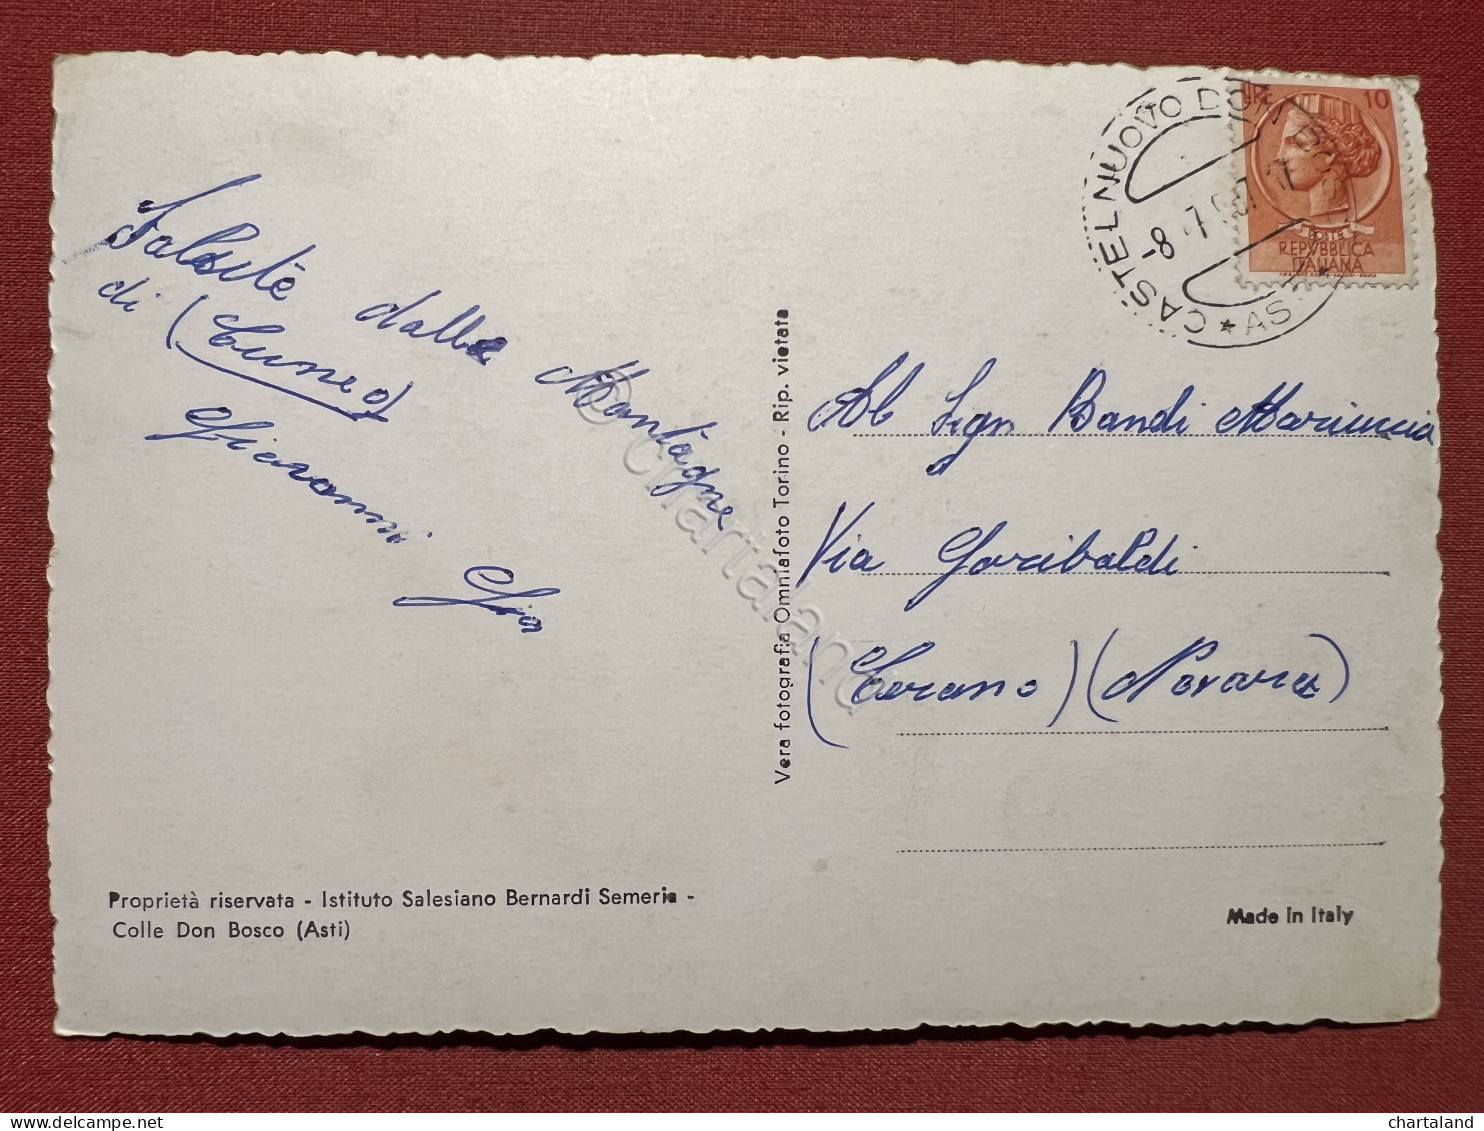 Saluti dalle Montagne
di (Cuneo)
Giovanni
Proprietà riservata - Istituto Salesiano Bernardi Semeria -
Colle Don Bosco (Asti)
Vera fotografia Omniafoto Torino - Rip. vietata
© chartaland
CASTELNUOVO DON BOSCO * ASTI *
-8 7
LIRE 10
POSTE
REPVBBLICA
ITALIANA
Sign Bandi Mariuccia
Via Garibaldi
(Cerano) (Novara)
Made in Italy
chartaland